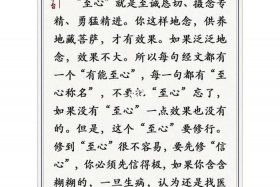 “至心”就是至诚恳切、摄念专
精、勇猛精进。你这样地念，供养
地藏菩萨，才有效果。如果泛泛地
念，效果不大。所以每句经文都有
一个“有能至心”，每一句都有“至
心称名”，不要把“至心”忘了，
如果没有“至心”一点效果也没有
的。但是，这个“至心”要修行。
修到“至心”很不容易，要先修“信
心”，你必须先信得极，如果你含含
糊糊的，一旦生病，认为还是找医